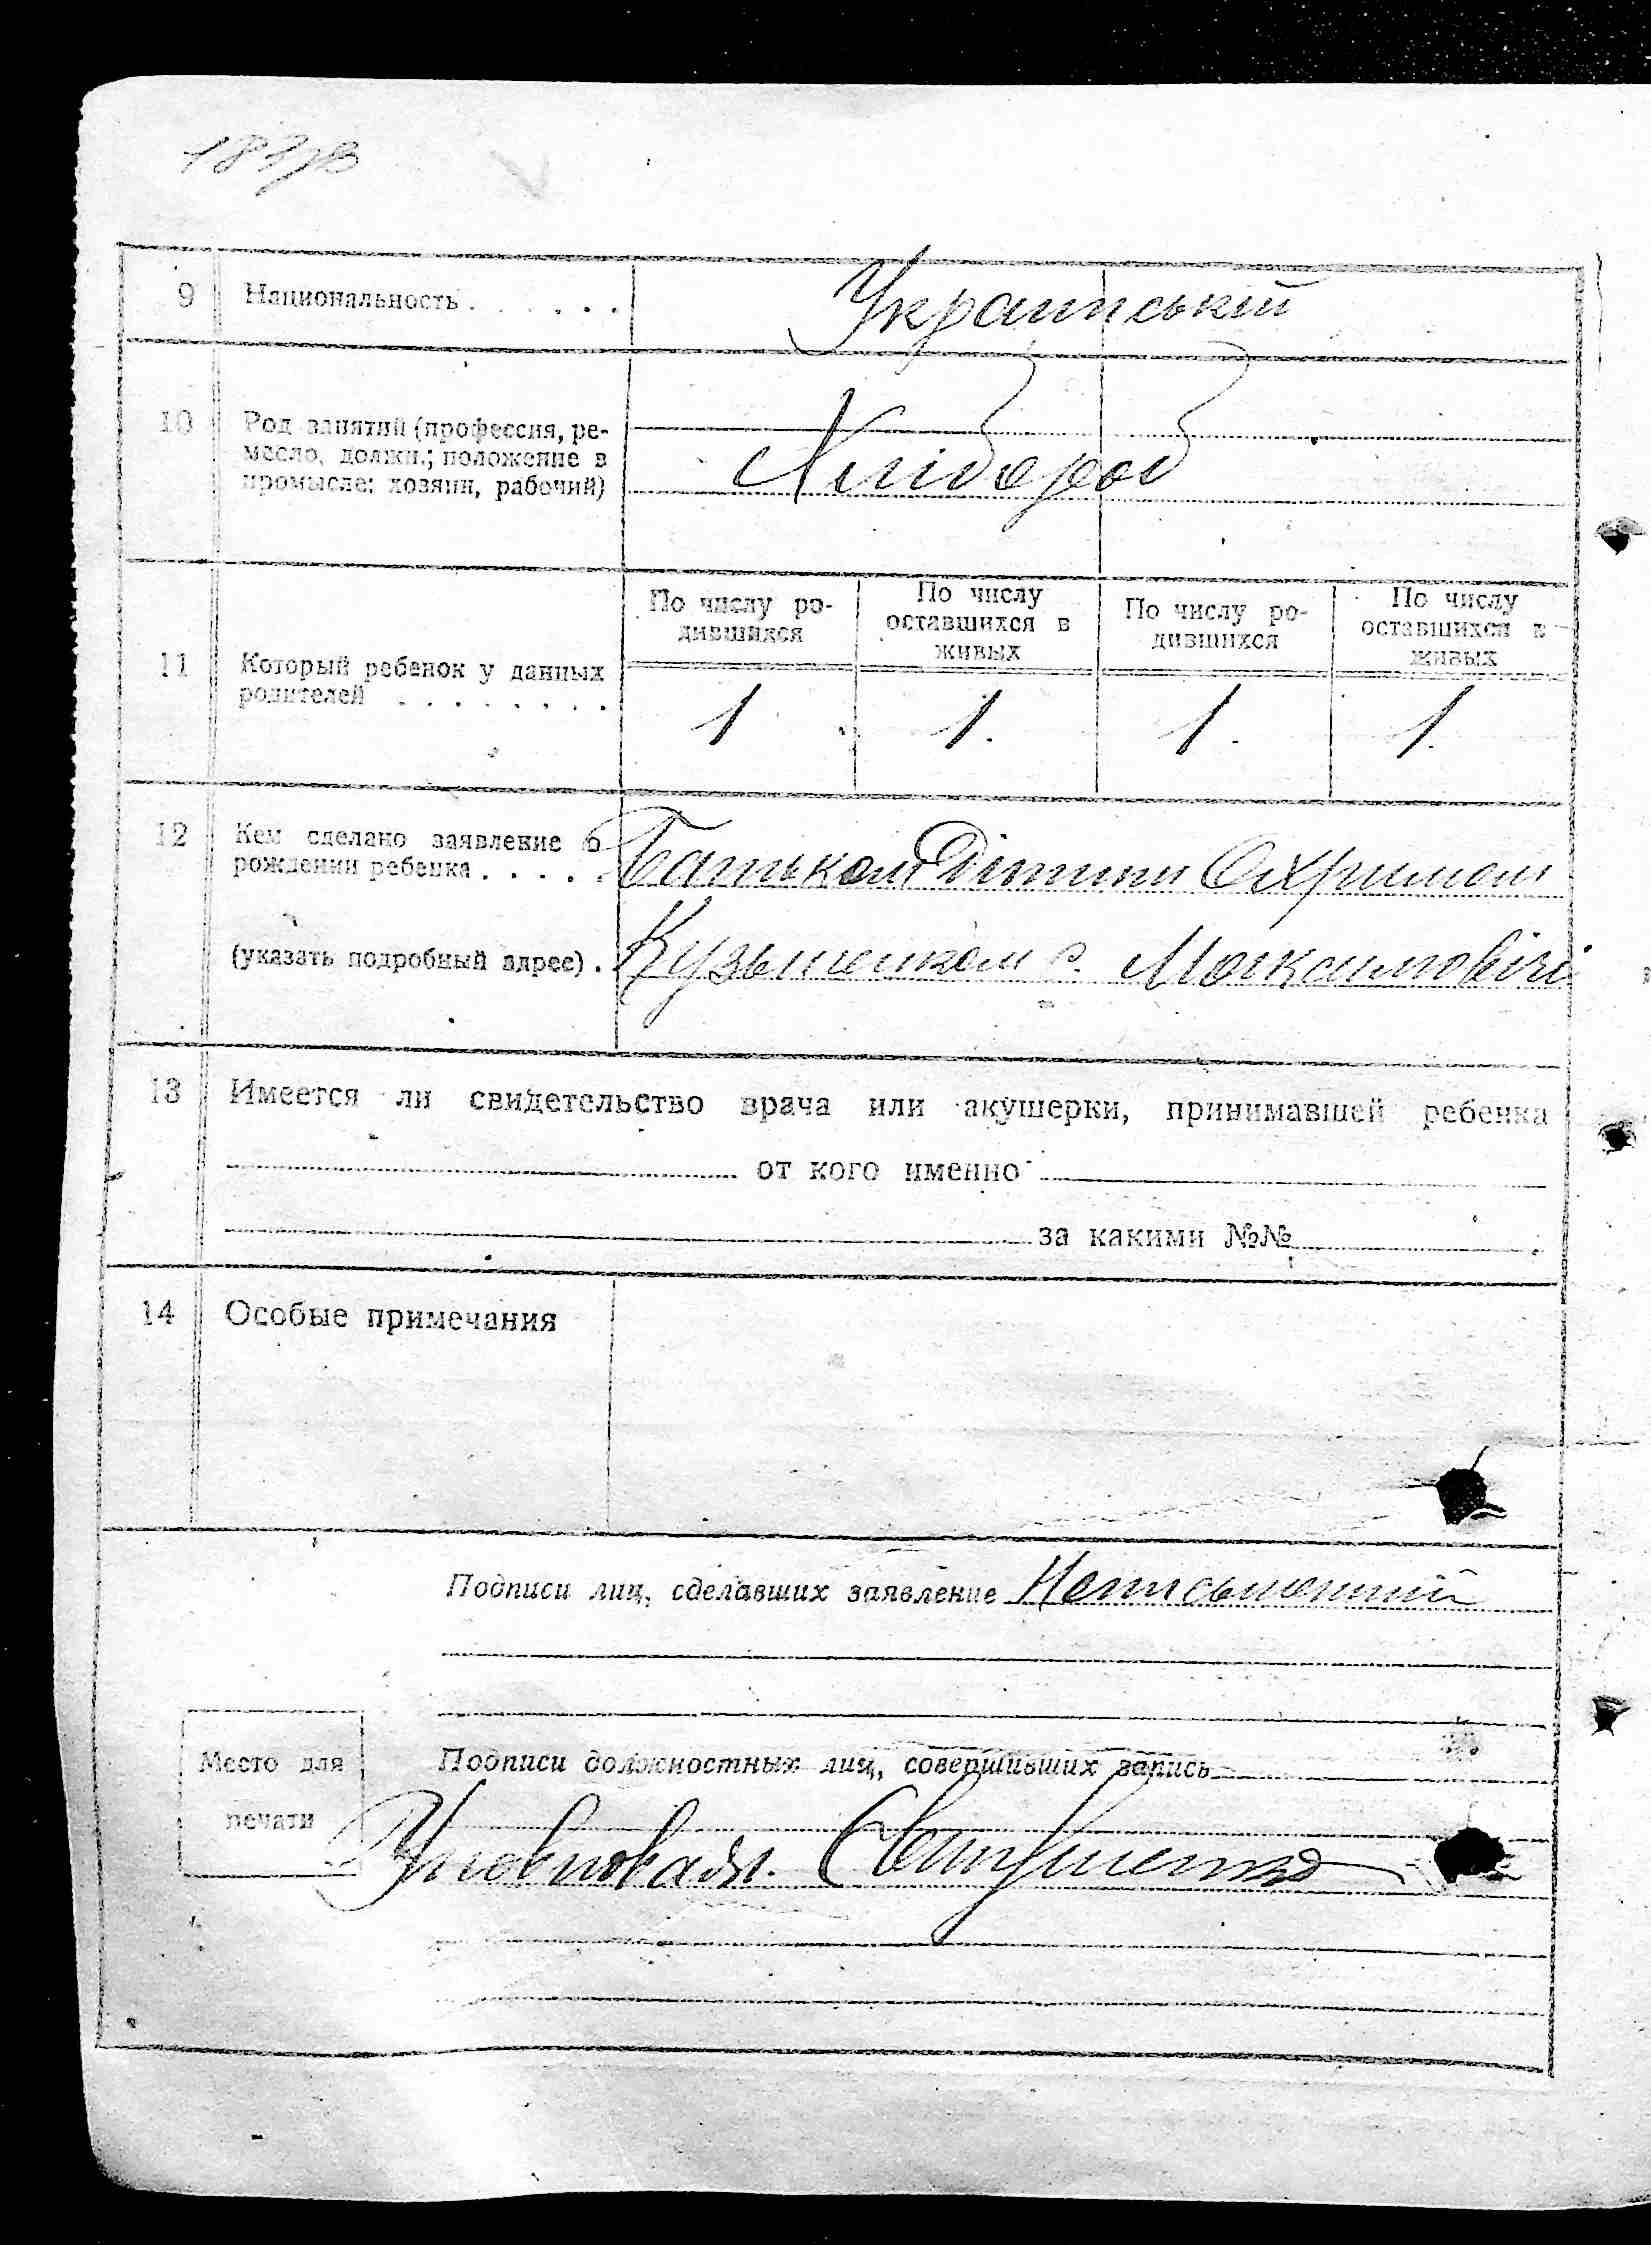 9 Национальность . . . . . . Украинській
10 Род занятий (профессия, ре-
месло, должн.; положение в
промысле: хозяин, рабочий)
Хлібороб
По числу ро-
дившихся
По числу
оставшихся в
живых
По числу ро-
дившихся
По числу
оставшихся в
живых
11 Который ребенок у данных
родителей . . . . . . . .
1 1. 1. 1.
12 Кем сделано заявление о
рождении ребенка . . . . .
Батьком Дитини Охримом
(указать подробный адрес) .
Кузьменком с. Максимовічі
13 Имеется ли свидетельство врача или акушерки, принимавшей ребенка
от кого именно
за какими №№
14 Особые примечания
Подписи лиц, сделавших заявление Неписьменний
Место для
печати
Подписи должностных лиц, совершивших запись